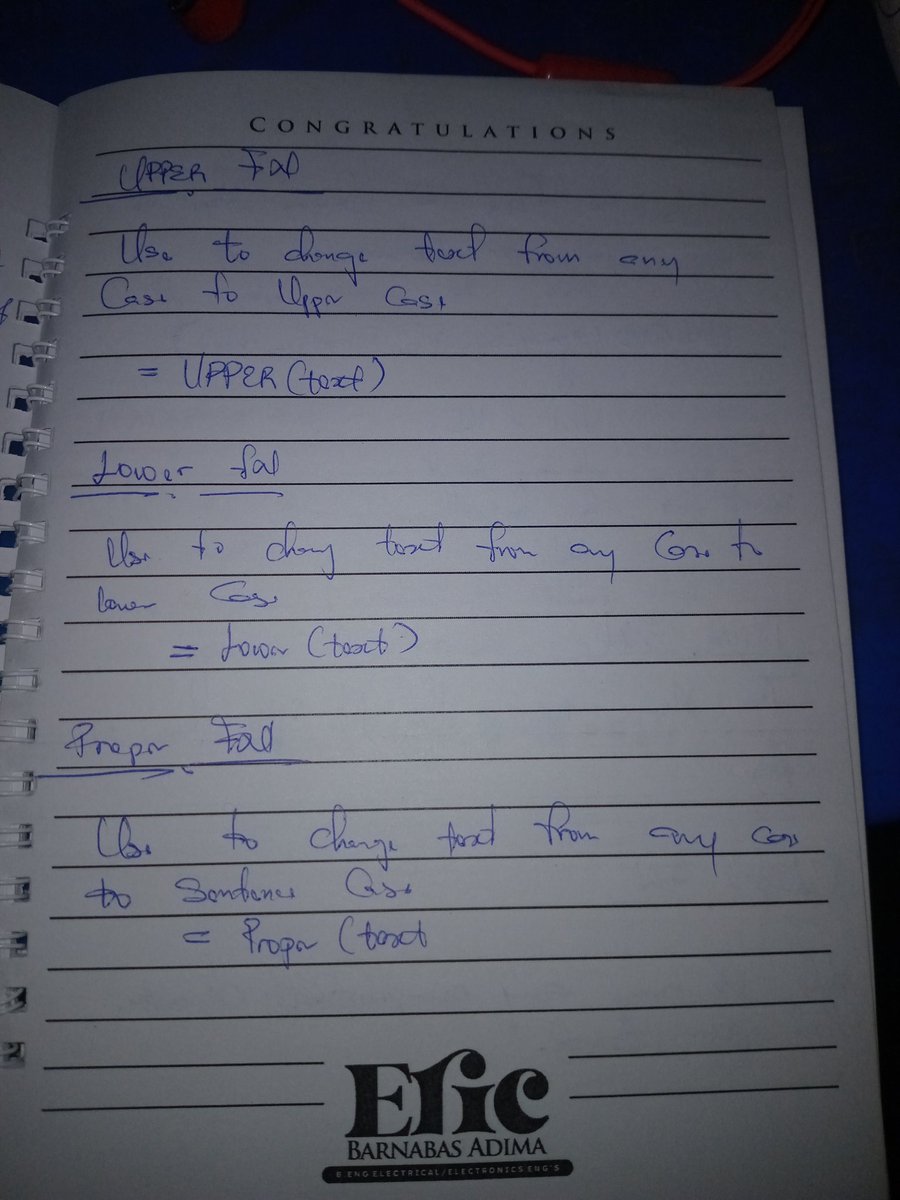 CONGRATULATIONS
UPPER
Use to change text from any
Case to Upper Case
= UPPER (text)
Lower
Use to chang text from any Case to
lower Case
= Lower (text)
Proper
Use to change text from any case
to Sentence Case
= Proper (text
Eric
BARNABAS ADIMA
B ENG ELECTRICAL/ELECTRONICS ENG'S